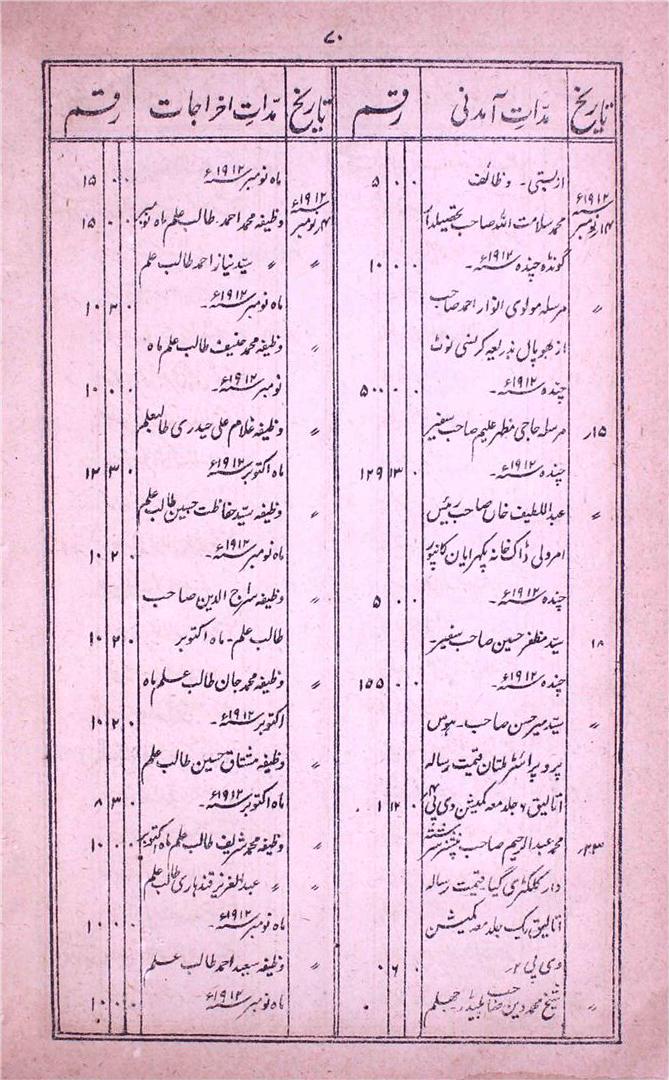 ۷۰
تاریخ مدّاتِ آمدنی رقم تاریخ مدّاتِ اخراجات رقم
۱۹۱۲ء
۱۴؍نومبر
ازبستی۔ وظائف ۵ ۰ ۰
محمد سلامت اللہ صاحب تحصیلدار
گونڈہ چندہ ۱۹۱۲ء۔ ۱۰ ۰ ۰
〃 مرسلہ مولوی انوار احمد صاحب
از بھوپال بذریعہ کرنسی نوٹ
چندہ ۱۹۱۲ء۔ ۵۰۰ ۰ ۰
۱۵؍ مرسلہ حاجی مظہر علیم صاحب سفیر
چندہ ۱۹۱۲ء۔ ۱۲۹ ۱۳ ۰
〃 عبداللطیف خاں صاحب رئیس
امرولی ڈاک خانہ پکھرایان کانپور
چندہ ۱۹۱۲ء۔ ۵ ۰ ۰
۱۸ سیّد مظفر حسین صاحب سفیر۔
چندہ ۱۹۱۲ء۔ ۱۵۵ ۰ ۰
〃 سیّد میر حسن صاحب۔ ہوس
پروپرائٹر ملتان قیمت رسالہ
اتالیق ۶ جلد معہ کمیشن وی پی ۱ ۱۲ ۰
۲۳؍ محمد عبدالرحیم صاحب پنشنر سرشتہ
دار کلکٹری گیا۔ قیمت رسالہ
اتالیق یک جلد معہ کمیشن
وی پی ۲؍ ۰ ۶ ۰
〃 شیخ محمد دین صاحب پلیڈر جھلم ۰
۱۹۱۲ء
۱۴؍نومبر
ماہ نومبر ۱۹۱۲ء ۱۵ ۰ ۰
وظیفہ محمد احمد۔ طالب علم ماہ نومبر ۱۵ ۰ ۰
〃 〃 سیّد نیاز احمد طالب علم
ماہ نومبر ۱۹۱۲ء۔ ۱۰ ۳ ۰
〃 وظیفہ محمد حنیف طالب علم ماہ
نومبر ۱۹۱۲ء۔ ۱۰ ۰ ۰
〃 وظیفہ غلام علی حیدری طالبعلم
ماہ اکتوبر ۱۹۱۲ء ۱۲ ۳ ۰
〃 وظیفہ سیّد حفاظت حسین طالب علم
ماہ نومبر ۱۹۱۲ء۔ ۱۰ ۲ ۰
〃 وظیفہ سراج الدین صاحب
طالب علم۔ ماہ اکتوبر ۱۰ ۲ ۰
〃 وظیفہ محمد جان طالب علم ماہ
اکتوبر ۱۹۱۲ء۔ ۱۰ ۲ ۰
〃 وظیفہ مشتاق حسین طالب علم
ماہ اکتوبر ۱۹۱۲ء۔ ۸ ۳ ۰
〃 وظیفہ محمد شریف طالب علم ماہ اکتوبر ۱۰ ۰ ۰
〃 〃 عبدالعزیز قندہاری طالب علم
ماہ نومبر ۱۹۱۲ء۔ ۱۰ ۰ ۰
〃 وظیفہ سعید احمد طالب علم
ماہ نومبر ۱۹۱۲ء۔ ۱۰ ۰ ۰